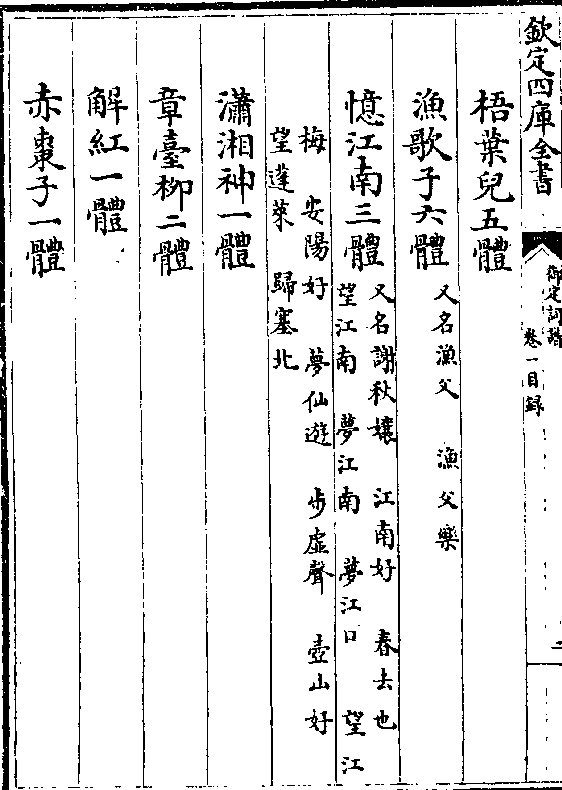 欽定四庫全書
御定詞譜
卷一目録
二
梧葉兒五體
漁歌子六體 又名漁父 漁父樂
憶江南三體 又名謝秋孃 江南好 春去也
望江南 夢江南 夢江口 望江
梅 安陽好 夢仙遊 步虛聲 壺山好
望蓬萊 歸塞北
瀟湘神一體
章臺柳二體
解紅一體
赤棗子一體